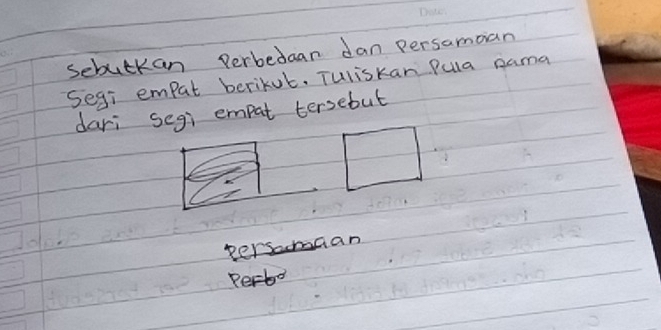 Sebutkan Perbedaan dan Persamaan
Segi empat berikut. Tuliskan Pula nama
dari segi empat tersebut
Persamaan
Perbe